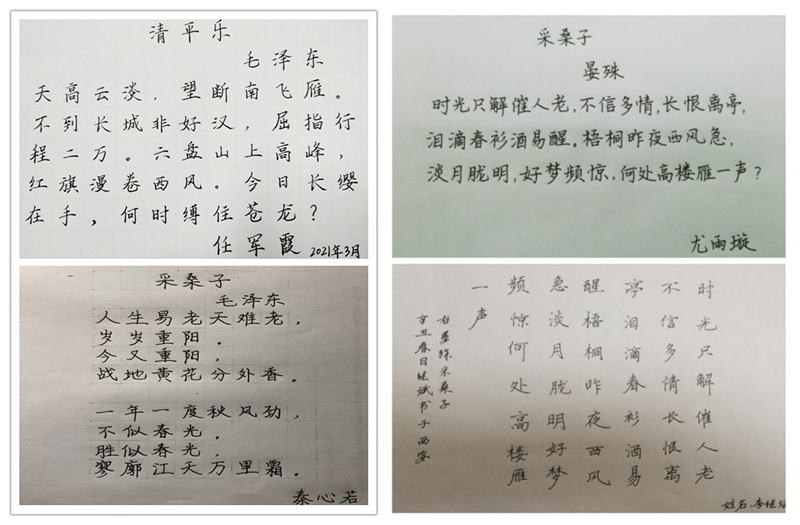 清平乐
毛泽东
天高云淡，望断南飞雁。
不到长城非好汉，屈指行
程二万。六盘山上高峰，
红旗漫卷西风。今日长缨
在手，何时缚住苍龙？
任军霞 2021年3月
采桑子
晏殊
时光只解催人老，不信多情，长恨离亭，
泪滴春衫酒易醒。梧桐昨夜西风急，
淡月胧明，好梦频惊，何处高楼雁一声？
尤雨璇
采桑子
毛泽东
人生易老天难老，
岁岁重阳。
今又重阳，
战地黄花分外香。
一年一度秋风劲，
不似春光。
胜似春光，
寥廓江天万里霜。
秦心若
时光只解催人老
不信多情长恨离
亭泪滴春衫酒易
醒梧桐昨夜西风
急淡月胧明好梦
频惊何处高楼雁
一声
右晏殊采桑子
辛丑春日继斌书于西安
姓名.李继